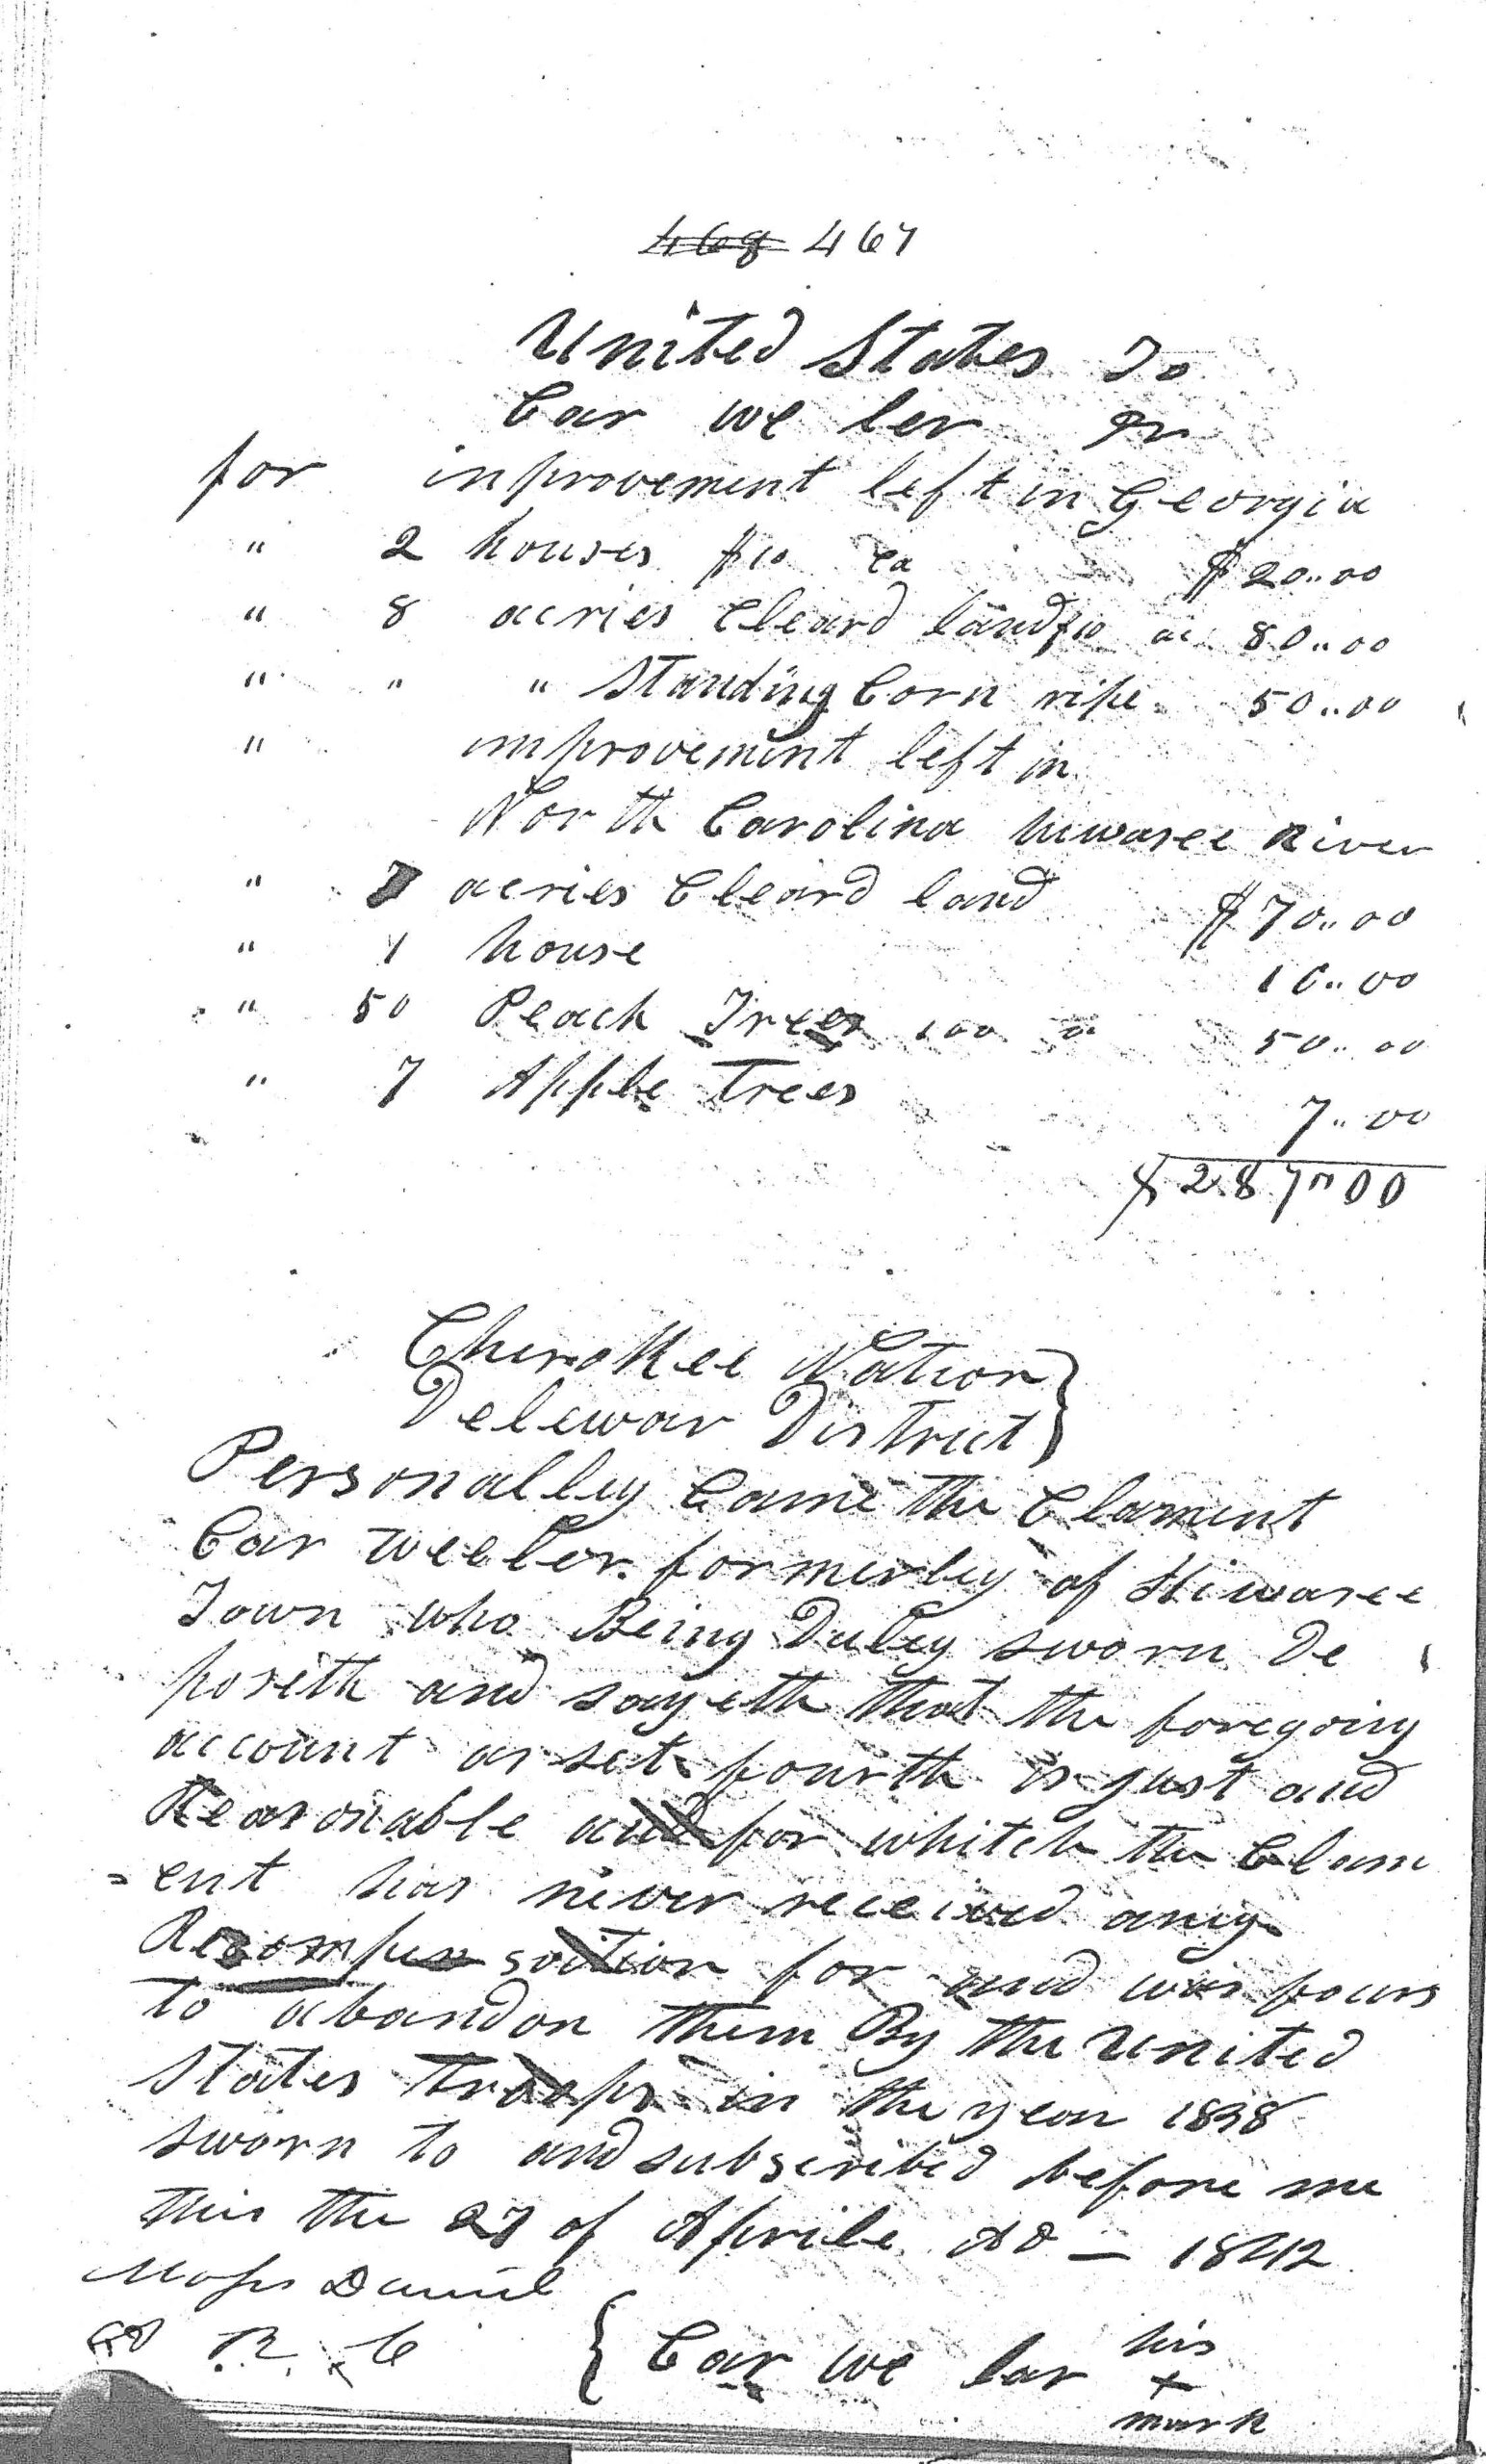 468 467
United States To
Car we ler Dr
for inprovement left in Georgia
" 2 houses $10 ea $20..00
" 8 acries Cleard land $10 ac 80..00
" " " Standing Corn ripe 50..00
" improvement left in
North Carolina hiwasee River
" 7 acries Cleard land $70..00
" 1 house 10..00
" 50 Peach Trees 100 50..00
" 7 Apple Trees 7..00
$287"00
Cherokee Nation }
Delewar District }
Personalley Came the Clament
Car weeler formerley of Hiwasee
Town who Being Duley sworn De
poseth and sayeth that the foregoing
account as set fourth is just and
Reasonable and for whitch the Clam
=ent has never received any
Recompensation for and was fours
to abandon them By the United
States Troops in the year 1838
sworn to and subscribed before me
this the 27 of Aprile AD — 1842
Moses Daniel
{ Car we lar his
x
mark